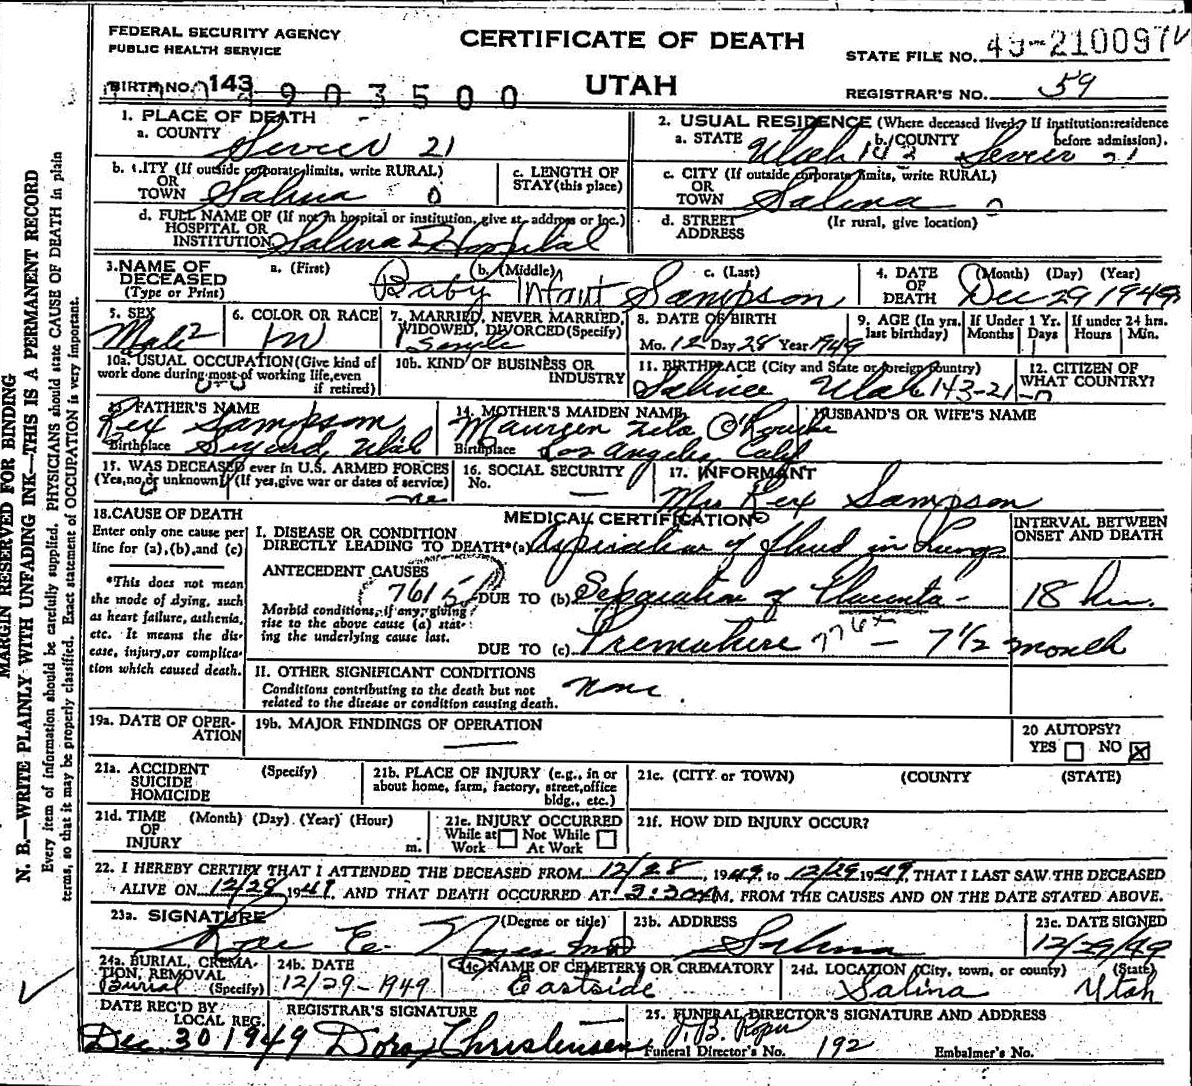 FEDERAL SECURITY AGENCY
PUBLIC HEALTH SERVICE
CERTIFICATE OF DEATH
UTAH
STATE FILE NO. 49-210097
BIRTH NO. 143 4903500
REGISTRAR'S NO. 59
1. PLACE OF DEATH
a. COUNTY Sevier 21
2. USUAL RESIDENCE (Where deceased lived. If institution:residence before admission).
a. STATE Utah 143 b. COUNTY Sevier 21
b. CITY (If outside corporate limits, write RURAL) OR TOWN Salina 0
c. LENGTH OF STAY (this place)
c. CITY (If outside corporate limits, write RURAL) OR TOWN Salina 0
d. FULL NAME OF (If not in hospital or institution, give st. address or loc.) HOSPITAL OR INSTITUTION Salina Hospital
d. STREET ADDRESS (If rural, give location)
3. NAME OF DECEASED (Type or Print)
a. (First) b. (Middle) c. (Last)
Baby Infant Sampson
4. DATE OF DEATH (Month) (Day) (Year)
Dec 29 1949
5. SEX
Male
6. COLOR OR RACE
W
7. MARRIED, NEVER MARRIED, WIDOWED, DIVORCED (Specify)
Single
8. DATE OF BIRTH
Mo. 12 Day 28 Year 1949
9. AGE (In yrs. last birthday) If Under 1 Yr. Months Days If under 24 hrs. Hours Min.
10a. USUAL OCCUPATION (Give kind of work done during most of working life, even if retired)
10b. KIND OF BUSINESS OR INDUSTRY
11. BIRTHPLACE (City and State or foreign country)
Salina Utah 143-21-0
12. CITIZEN OF WHAT COUNTRY?
13. FATHER'S NAME
Rex Sampson
Birthplace Sigurd, Utah
14. MOTHER'S MAIDEN NAME
Maureen O'Rourke
Birthplace Los Angeles, Calif
HUSBAND'S OR WIFE'S NAME
15. WAS DECEASED ever in U.S. ARMED FORCES (Yes, no, or unknown) (If yes, give war or dates of service)
no
16. SOCIAL SECURITY No. —
17. INFORMANT
Mrs Rex Sampson
18. CAUSE OF DEATH
Enter only one cause per line for (a), (b), and (c)
*This does not mean the mode of dying, such as heart failure, asthenia, etc. It means the disease, injury, or complication which caused death.
MEDICAL CERTIFICATION
INTERVAL BETWEEN ONSET AND DEATH
I. DISEASE OR CONDITION DIRECTLY LEADING TO DEATH* (a) Aspiration of fluid in Lungs
ANTECEDENT CAUSES
7615
Morbid conditions, if any, giving rise to the above cause (a) stating the underlying cause last.
DUE TO (b) Separation of Placenta - 18 hr.
DUE TO (c) Premature 776x — 7 1/2 month
II. OTHER SIGNIFICANT CONDITIONS
Conditions contributing to the death but not related to the disease or condition causing death.
none.
19a. DATE OF OPERATION
19b. MAJOR FINDINGS OF OPERATION
—
20 AUTOPSY?
YES NO X
21a. ACCIDENT SUICIDE HOMICIDE (Specify)
21b. PLACE OF INJURY (e.g., in or about home, farm, factory, street, office bldg., etc.)
21c. (CITY or TOWN) (COUNTY) (STATE)
21d. TIME OF INJURY (Month) (Day) (Year) (Hour) m.
21e. INJURY OCCURRED
While at Work Not While At Work
21f. HOW DID INJURY OCCUR?
22. I HEREBY CERTIFY THAT I ATTENDED THE DECEASED FROM 12/28, 1949, to 12/29 1949, THAT I LAST SAW THE DECEASED
ALIVE ON 12/29 1949 AND THAT DEATH OCCURRED AT M, FROM THE CAUSES AND ON THE DATE STATED ABOVE.
23a. SIGNATURE (Degree or title)
Rae E. Noyes MD
23b. ADDRESS
Salina
23c. DATE SIGNED
12/29/49
24a. BURIAL, CREMATION, REMOVAL (Specify)
Burial
24b. DATE
12/29-1949
24c. NAME OF CEMETERY OR CREMATORY
Eastside
24d. LOCATION (City, town, or county) (State)
Salina Utah
DATE REC'D BY LOCAL REG.
Dec. 30 1949
REGISTRAR'S SIGNATURE
Dora Christensen
25. FUNERAL DIRECTOR'S SIGNATURE AND ADDRESS
J. B. Roper
Funeral Director's No. 192 Embalmer's No.
MARGIN RESERVED FOR BINDING
N. B.—WRITE PLAINLY WITH UNFADING INK—THIS IS A PERMANENT RECORD
Every item of information should be carefully supplied. PHYSICIANS should state CAUSE OF DEATH in plain
terms, so that it may be properly classified. Exact statement of OCCUPATION is very important.